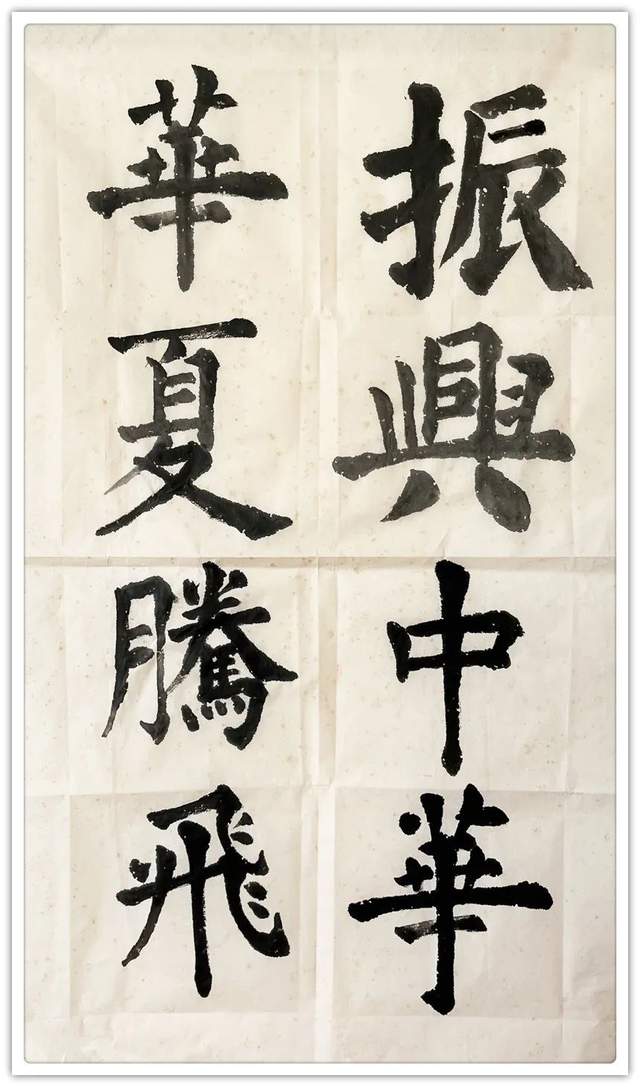 振興中華
華夏騰飛